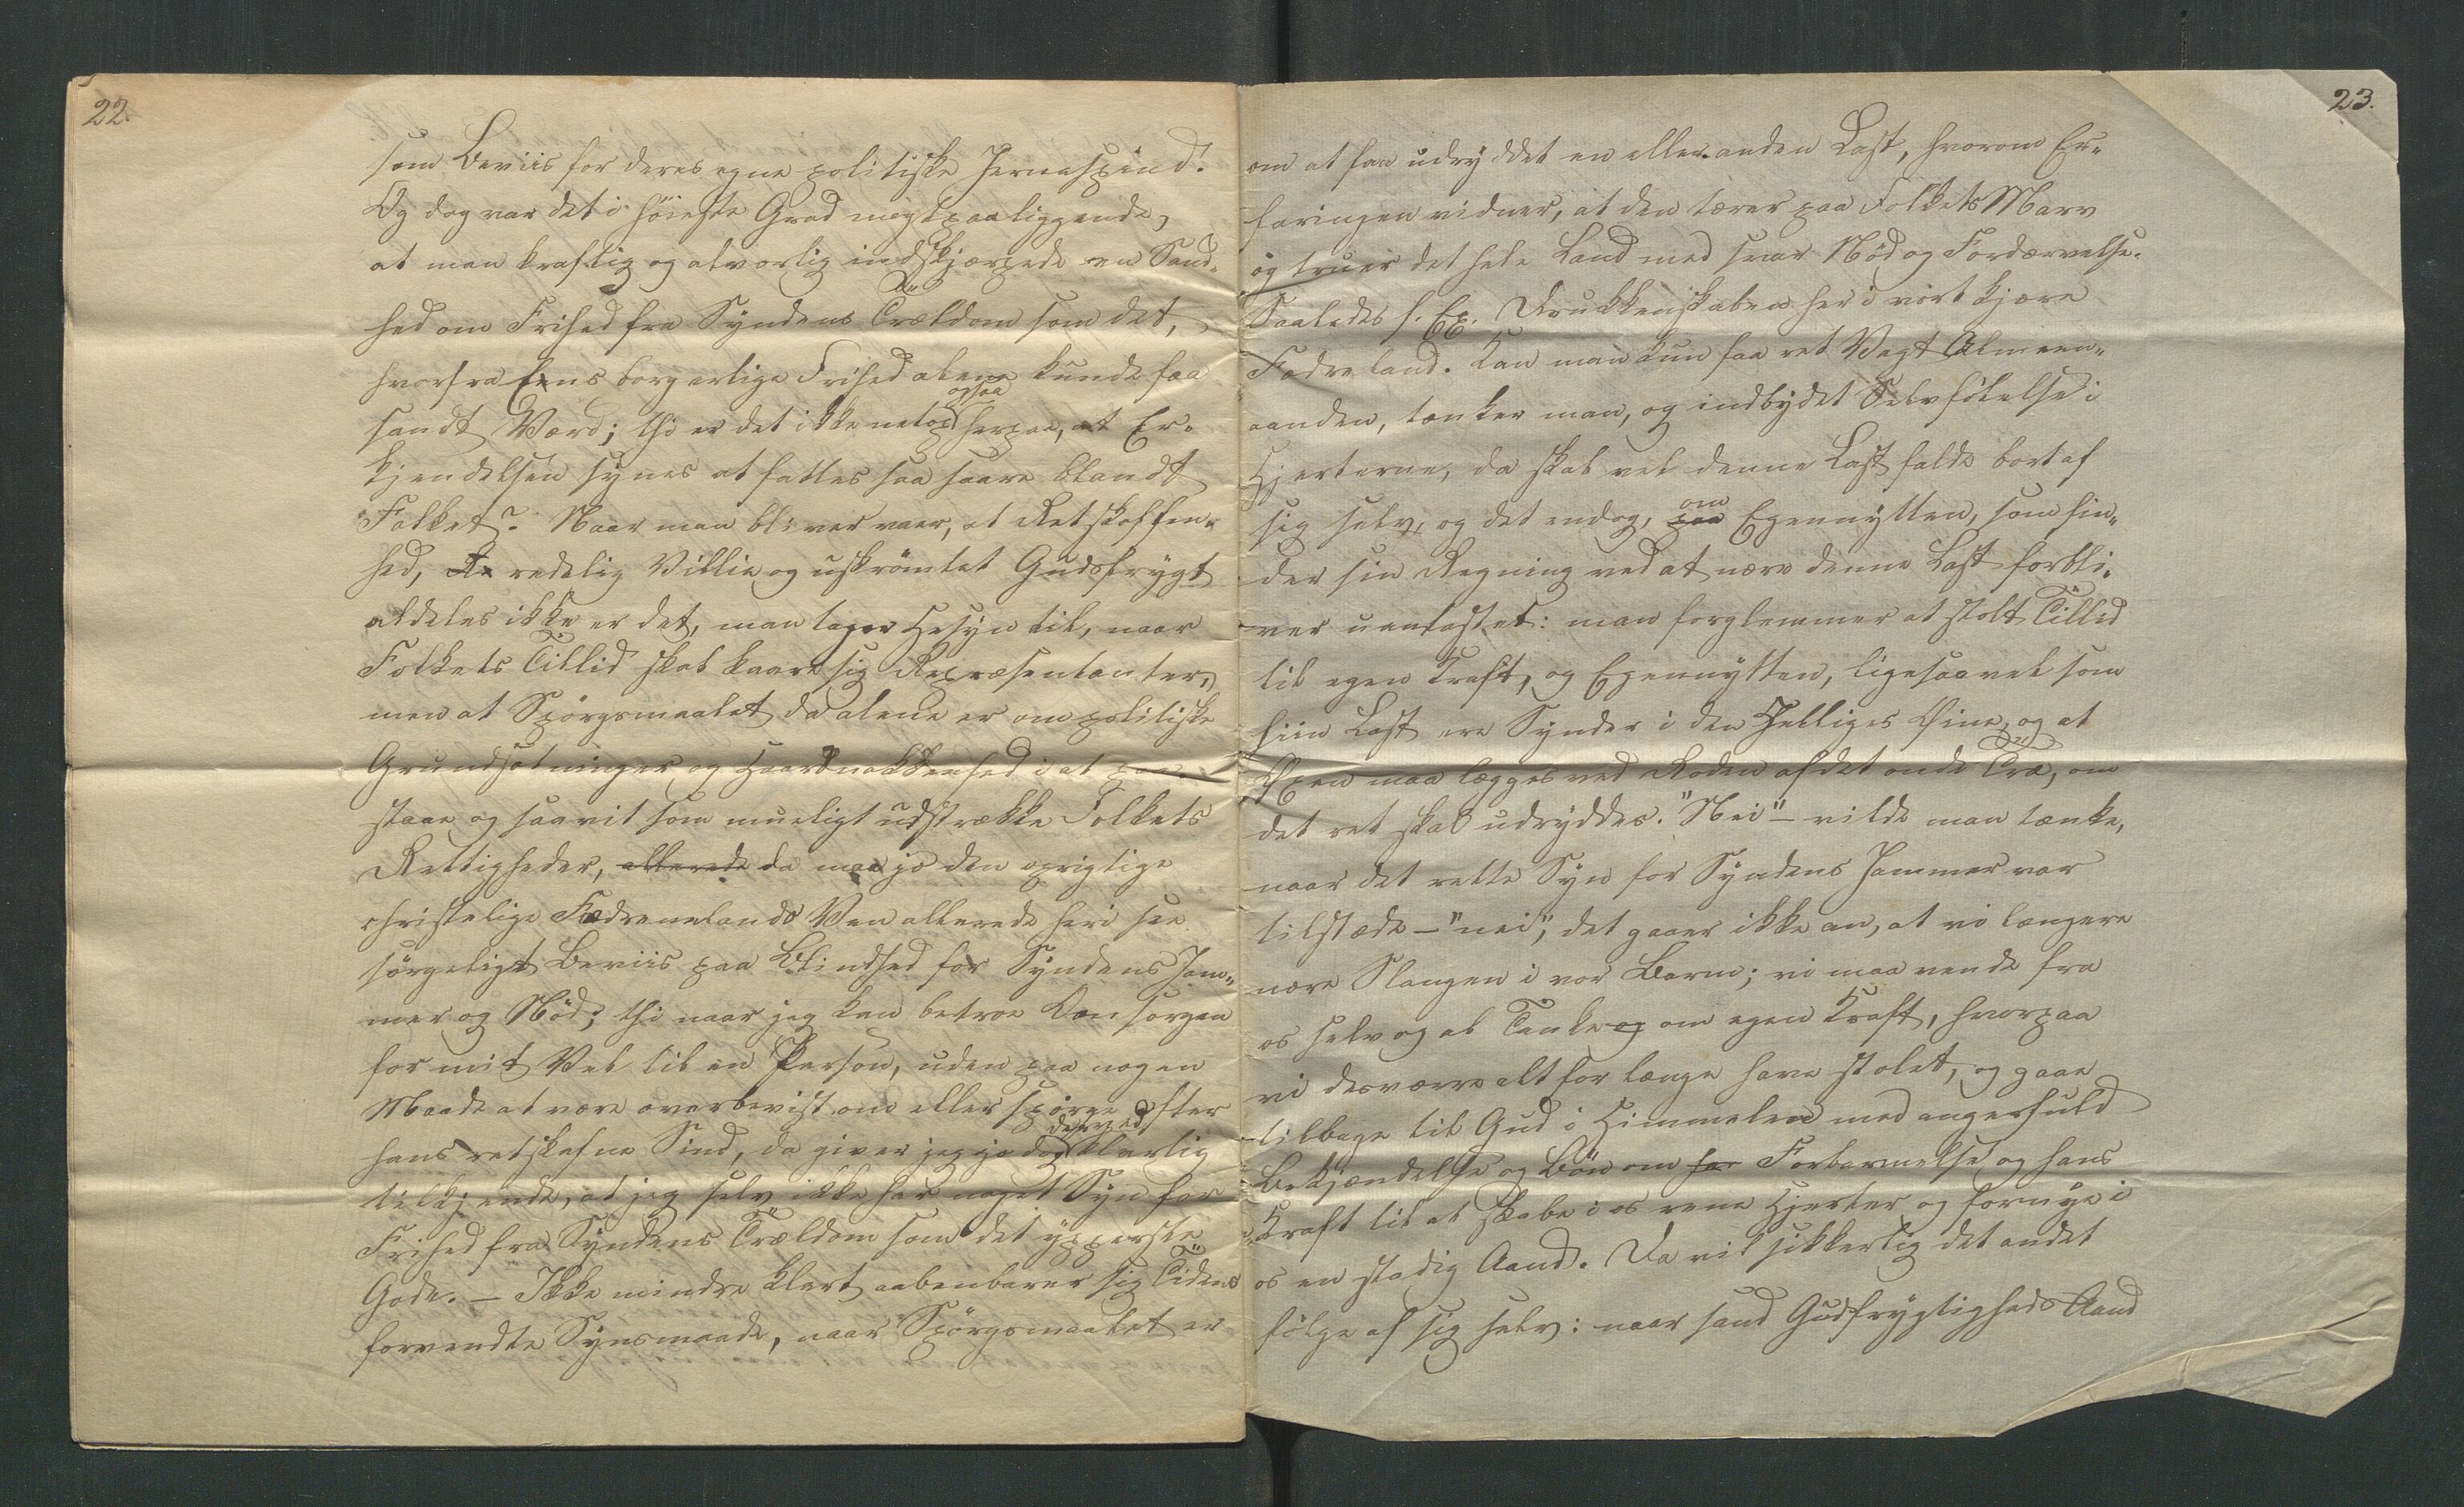 22.
som Beviis for deres egne politiske Hernaspind.
Og dog var det i höieste Grad magtpaaliggende,
at man kraftig og alvorlig indskjærpede en Sand-
hed om Frihed fra Syndens Trældom som det,
hvorfra Ens borgerlige Frihed alene kunde faa
sandt Værd; thi er det ikke netop ogsaa herpaa, at Er-
kjendelsen synes at fattes saa saare blandt
Folket? Naar man bliver vaer, at Retskaffen-
hed, redelig Villie og uskrömtet Gudsfrygt
aldeles ikke er det, man tager Hesyn til, naar
Folkets Tillid skal kaare sig Repræsentanter,
men at Spörgsmaalet da alene er om politiske
Grundsætninger og Haardnakkenhed i at paa-
staae og saavit som mueligt udstrække Folkets
Rettigheder, allerede da maa jo den oprigtige
christelige Fædrenelands Ven allerede heri see
sörgeligt Beviis paa Blindhed for Syndens Jam-
mer og Nöd; thi naar jeg kan betroe Omsorgen
for mit Vel til en Person, uden paa nogen
Maade at være overbevist om eller spörge efter
hans retskafne Sind, da giver jeg jo dog derved klarlig
tilkjende, at jeg selv ikke har noget Syn for
Frihed fra Syndens Trældom som det ypperste
Gode. – Ikke mindre klart aabenbarer sig Tidens
forvendte Synsmaade, naar Spörgsmaalet er
23.
om at faa udryddet en eller anden Last, hvorom Er-
faringen vidner, at den tærer paa Folkets Marv
og truer det hele Land med svar Nöd og Fordærvelse.
Saaledes f. Ex. Drukkenskaben her i vort kjære
Fædreland. Kan man kun faa ret Vagt Almeen-
aanden, tænker man, og indbydet Selvfölelse i
Hjerterne, da skal vel denne Last falde bort af
sig selv, og det endog, om paa Egennytten, som fin-
der sin Regning ved at nære denne Last forbli-
ver uantastet: man forglemmer at stolt Tillid
til egen Kraft, og Egennytten, ligesaavel som
hiin Last ere Synder i den Helliges Öine, og at
Öxen maa lægges ved Roden af det onde Træ, om
det ret skal udryddes. "Nei" – vilde man tænke,
naar det rette Syn for Syndens Jammer var
tilstæde – "nei", det gaaer ikke an, at vi længere
nære Slangen i vor Barm; vi maa vende fra
os selv og al Tanke og om egen Kraft, hvorpaa
vi desværre alt for længe have stolet, og gaae
tilbage til Gud i Himmelen med angerfuld
Bekjendelse og Bön om Forbarmelse og hans
Kraft til at skabe i os rene Hjerter og fornye i
os en stadig Aand. Da vil sikkerlig det andet
fölge af sig selv: naar sand Gudfrygtigheds Aand